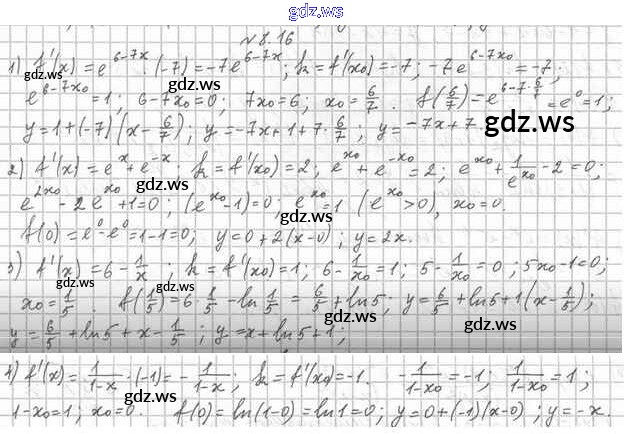 gdz.ws
№ 8.16
1) f'(x) = e^{6-7x} · (-7) = -7e^{6-7x}; k = f'(x₀) = -7; -7e^{6-7x₀} = -7;
gdz.ws
e^{6-7x₀} = 1; 6-7x₀ = 0; 7x₀ = 6; x₀ = 6/7. f(6/7) = e^{6-7·6/7} = e⁰ = 1;
y = 1 + (-7)(x - 6/7); y = -7x + 1 + 7·6/7; y = -7x + 7.
gdz.ws
2) f'(x) = e^x + e^{-x}; k = f'(x₀) = 2; e^{x₀} + e^{-x₀} = 2; e^{x₀} + 1/e^{x₀} - 2 = 0;
gdz.ws
e^{2x₀} - 2e^{x₀} + 1 = 0; (e^{x₀} - 1) = 0; e^{x₀} = 1 (e^{x₀} > 0), x₀ = 0.
gdz.ws
f(0) = e⁰ - e⁰ = 1 - 1 = 0; y = 0 + 2(x - 0); y = 2x.
3) f'(x) = 6 - 1/x; k = f'(x₀) = 1; 6 - 1/x₀ = 1; 5 - 1/x₀ = 0; 5x₀ - 1 = 0;
gdz.ws
x₀ = 1/5. f(1/5) = 6·1/5 - ln 1/5 = 6/5 + ln5; y = 6/5 + ln5 + 1(x - 1/5);
y = 6/5 + ln5 + x - 1/5; y = x + ln5 + 1;
gdz.ws
4) f'(x) = 1/(1-x) · (-1) = - 1/(1-x); k = f'(x₀) = -1. - 1/(1-x₀) = -1; 1/(1-x₀) = 1;
1 - x₀ = 1; x₀ = 0. f(0) = ln(1-0) = ln1 = 0; y = 0 + (-1)(x-0); y = -x.
gdz.ws
gdz.ws